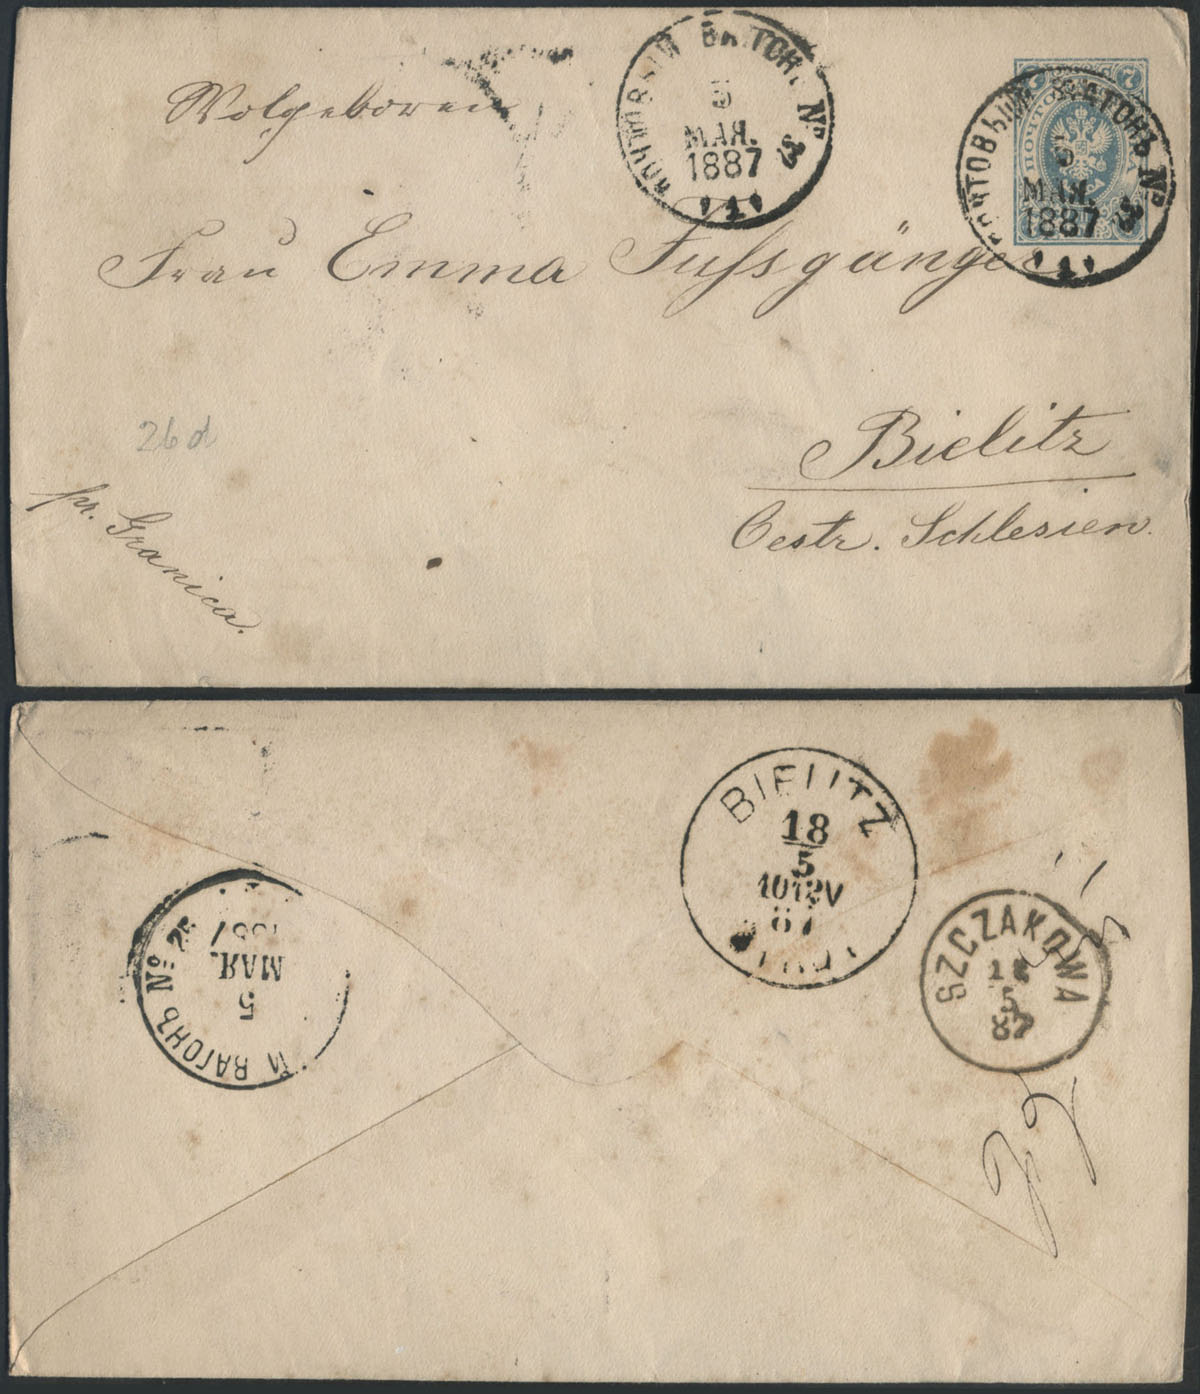 Wolgeboren
ПОЧТОВЫЙ ВАГОНЪ № 3
5
МАЯ.
1887
1
7
ПОЧТОВЫЙ ВАГОНЪ № 3
5
МАЯ.
1887
1
Frau Emma Fussgänger
26 d
Bielitz
Oestr. Schlesien.
pr. Granica.
BIELITZ
18
5
1012V
87
SZCZAKOWA
5
87
ВАГОНЪ № 25
5
МАЯ.
1887